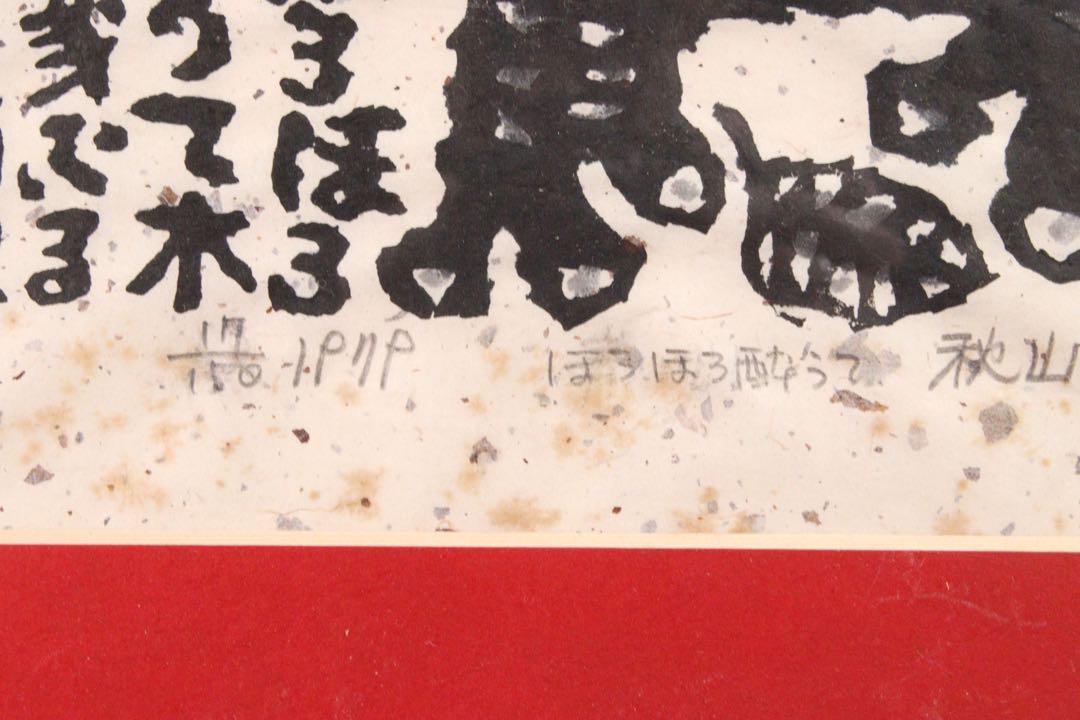 ろほろ
うて木
葉ふる
17/150 1979 ほろほろ酔うて 秋山